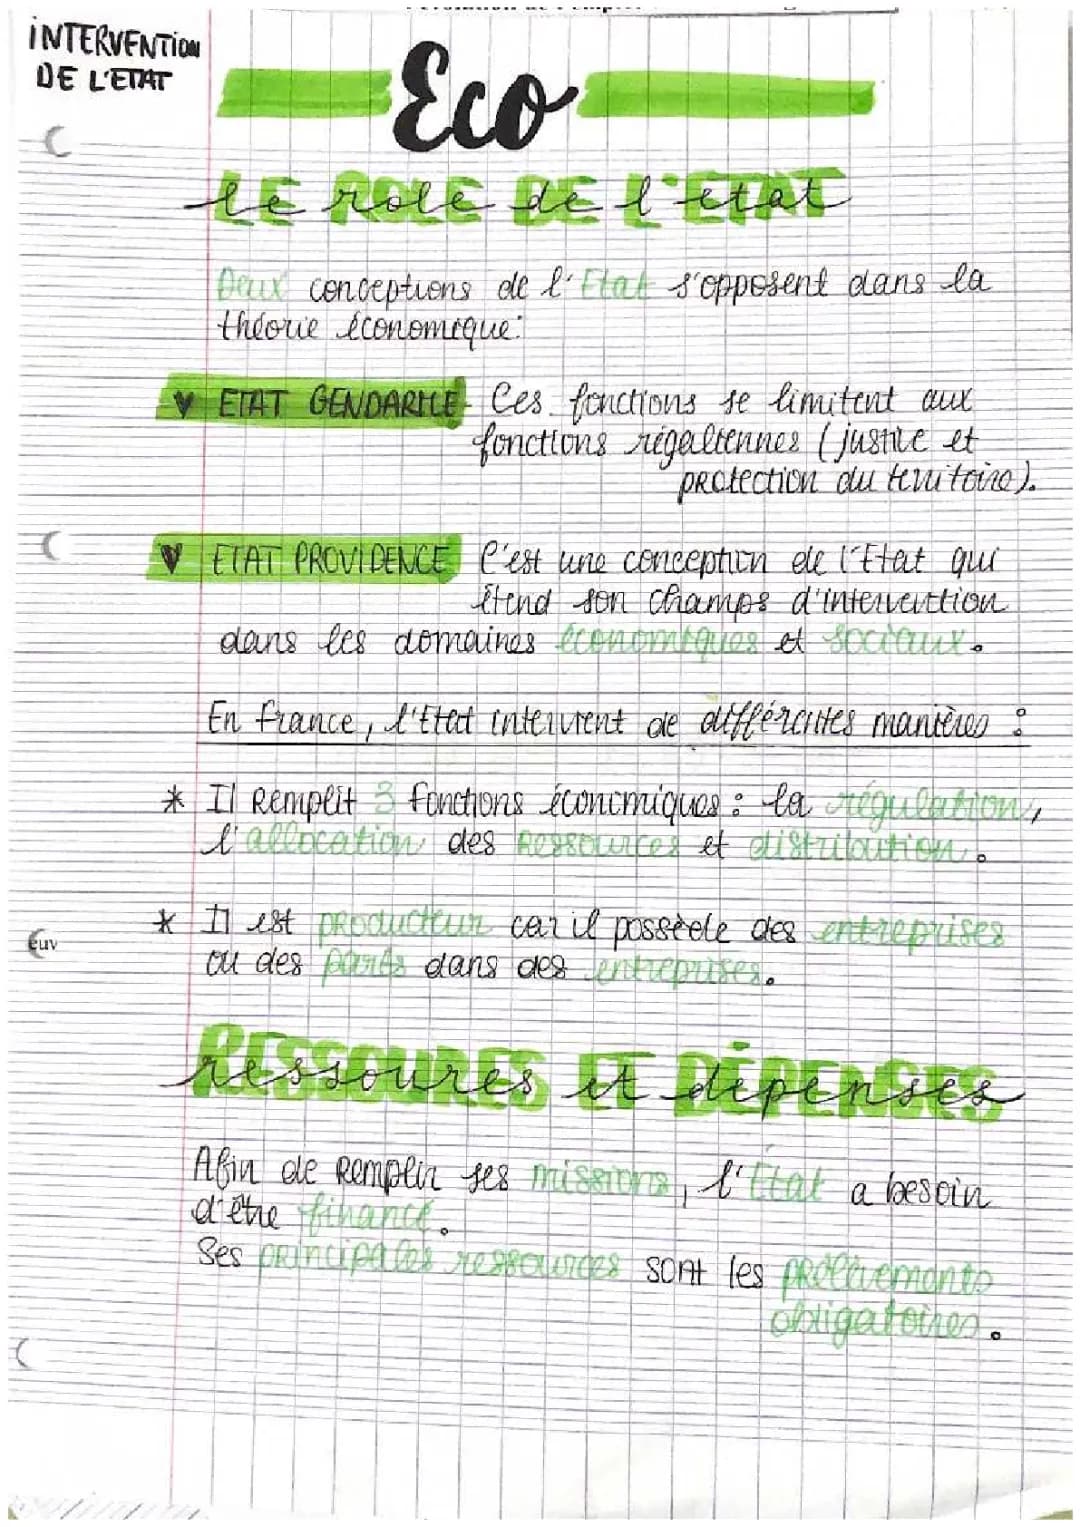 INTERVENTION
DE L'ETAT
Eco
LE ROLE DE L'ETAT
Deux conceptions de l'Etat s'opposent dans la
théorie économique:
ETAT GENDARME Ces fonctions se limitent aux
fonctions régaliennes (justice et
protection du territoire).
ETAT PROVIDENCE C'est une conception de l'Etat qui
étend son champs d'intervention
dans les domaines économiques et sociaux.
En france, l'Etat intervient de différentes manières :
* Il remplit 3 fonctions économiques : la régulation,
l'allocation des ressources et distribution.
* Il est producteur car il possède des entreprises
ou des parts dans des entreprises.
euv
RESSOURES ET DÉPENSES
Afin de remplir ses missions, l'État a besoin
d'être financé.
Ses principales ressources sont les prélèvements
obligatoires.